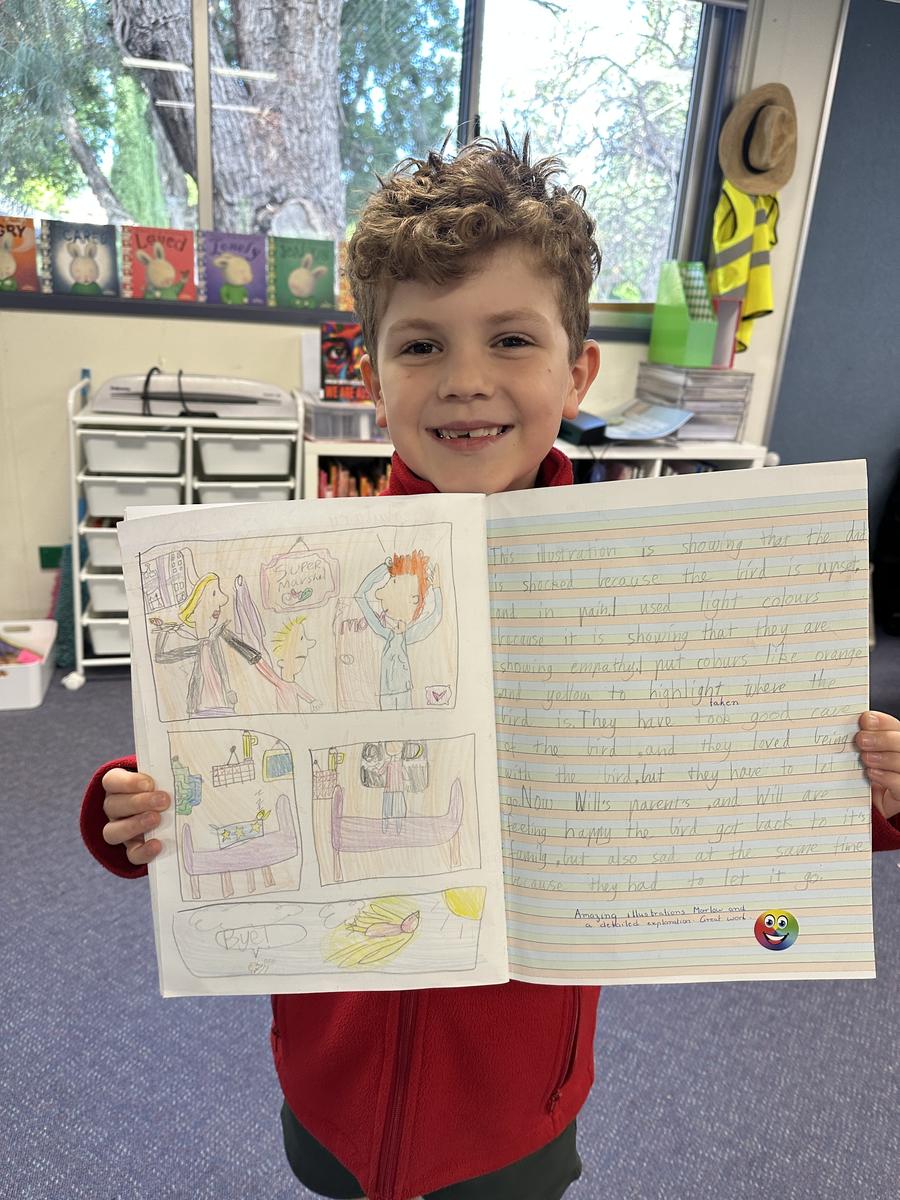 GRY
SCARED
Loved
Lonely
Jealous
WE ARE
Fellowes
SUPER
Marshal
Bye!
This illustration is showing that the dad
is shocked because the bird is upset,
and in pain.I used light colours
because it is showing that they are
showing empathy.I put colours like orange
and yellow to highlight where the
taken
bird is.They have took good care
of the bird ,and they loved being
with the bird,but they have to let it
go.Now Will's parent's ,and Will are
feeling happy the bird got back to it's
family ,but also sad at the same time
because they had to let it go.
Amazing illustrations Marlow and
a detailed explanation. Great work.